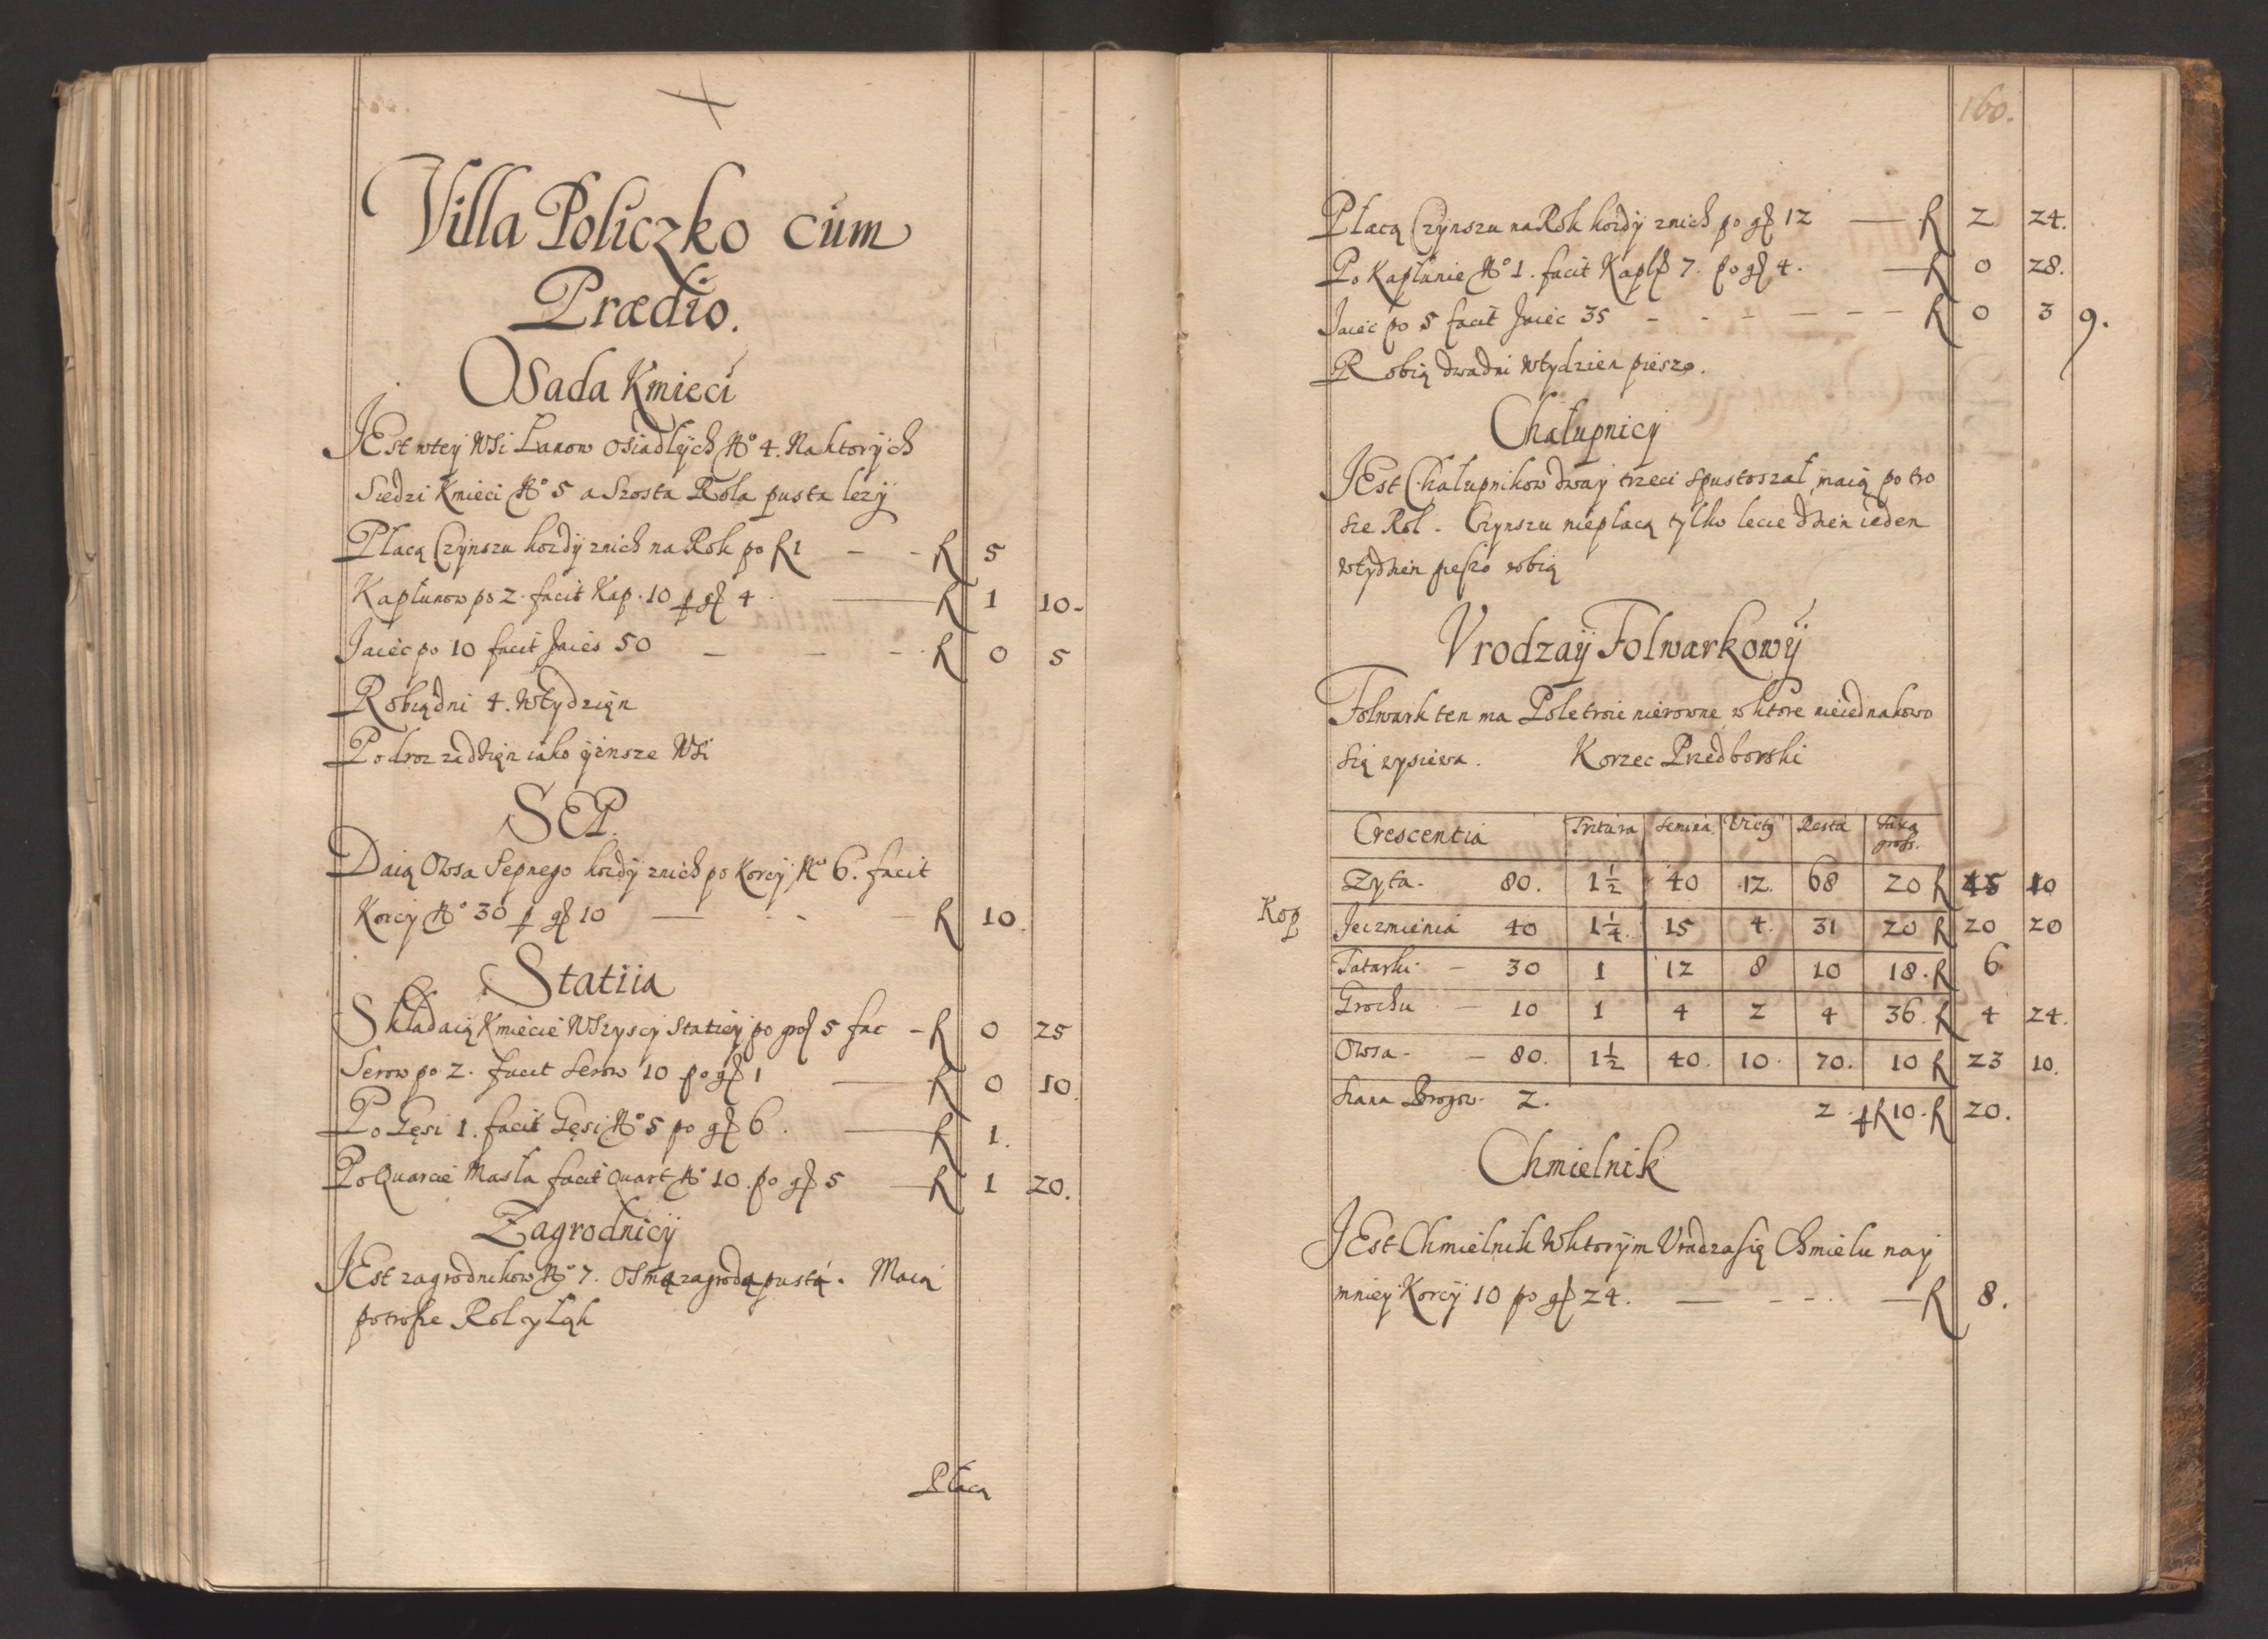 Villa Policzko cum
Prædio.
Osada Kmieci
JEst wtey Wsi Lanow Osiadlÿch No 4. Na ktorÿch
Siedzi Kmieci No 5 a Szosta Rola pusta lezÿ
Płacą Czÿnszu kozdÿ znich na Rok po fl 1 - - fl 5
Kapłunow po 2. facit Kap. 10 p gß 4 — fl 1 10.
Jaiec po 10 facit Jaiec 50 — - - fl 0 5
Robią dni 4. Wtydzięn
Podroz za dzięn iako ÿinsze Wsi
SEP.
Daią Owsa Sepnego kozdÿ znich po Korcÿ No 6. facit
Korcÿ No 30 p gß 10 — - - fl 10.
Statiia
Składaią Kmiecie Wszyscÿ Statieÿ po groß 5 fac - fl 0 25
Serow po 2. facit Serow 10 po gß 1 — fl 0 10.
Po Gęsi 1. facit Gęsi No 5 po gß 6. — fl 1.
Po Quarcie Masła facit Quart No 10. po gß 5 — fl 1 20.
Zagrodnicÿ
JEst zagrodnikow No 7. Osmą zagrodą pustą. Maią
potrosze Rol y Łąk
Płacą
160.
Płacą Czÿnszu na Rok kozdÿ znich po gß 12 — fl 2 24.
Po Kapłunie No 1. facit Kapł 7. po gß 4. — fl 0 28.
Jaiec po 5 facit Jaiec 35 - - - - - - fl 0 3 9.
Robią dwadni Wtydzien pieszo.
Chałupnicÿ
JEst Chałupnikow dwaÿ trzeci spustoszał, maią po tro
sze Rol. Czynszu niepłacą tylko lecie dzien ieden
wtydzien pieszo robią
Vrodzaÿ Folwarkowÿ
Folwark ten ma Pole troie nierowne w ktore nieiednakowo
Się wysiewa. Korzec Przedborski
Crescentia Tritura Semina Victg Resta Taxa gross.
Zyta. 80. 1½ 40 12. 68 20 fl 45 10
Kop
Jeczmienia 40 1¼. 15 4. 31 20 fl 20 20
Tatarki - 30 1 12 8 10 18. fl 6
Grochu - 10 1 4 2 4 36. fl 4 24.
Owsa - - 80. 1½ 40. 10. 70. 10 fl 23 10.
Siana Brogow. 2. 2. p fl 10. fl 20.
Chmielnik
JEst Chmielnik Wktorÿm Vradza się Chmielu naÿ
mnieÿ Korcÿ 10 po gß 24. — - - - — fl 8.